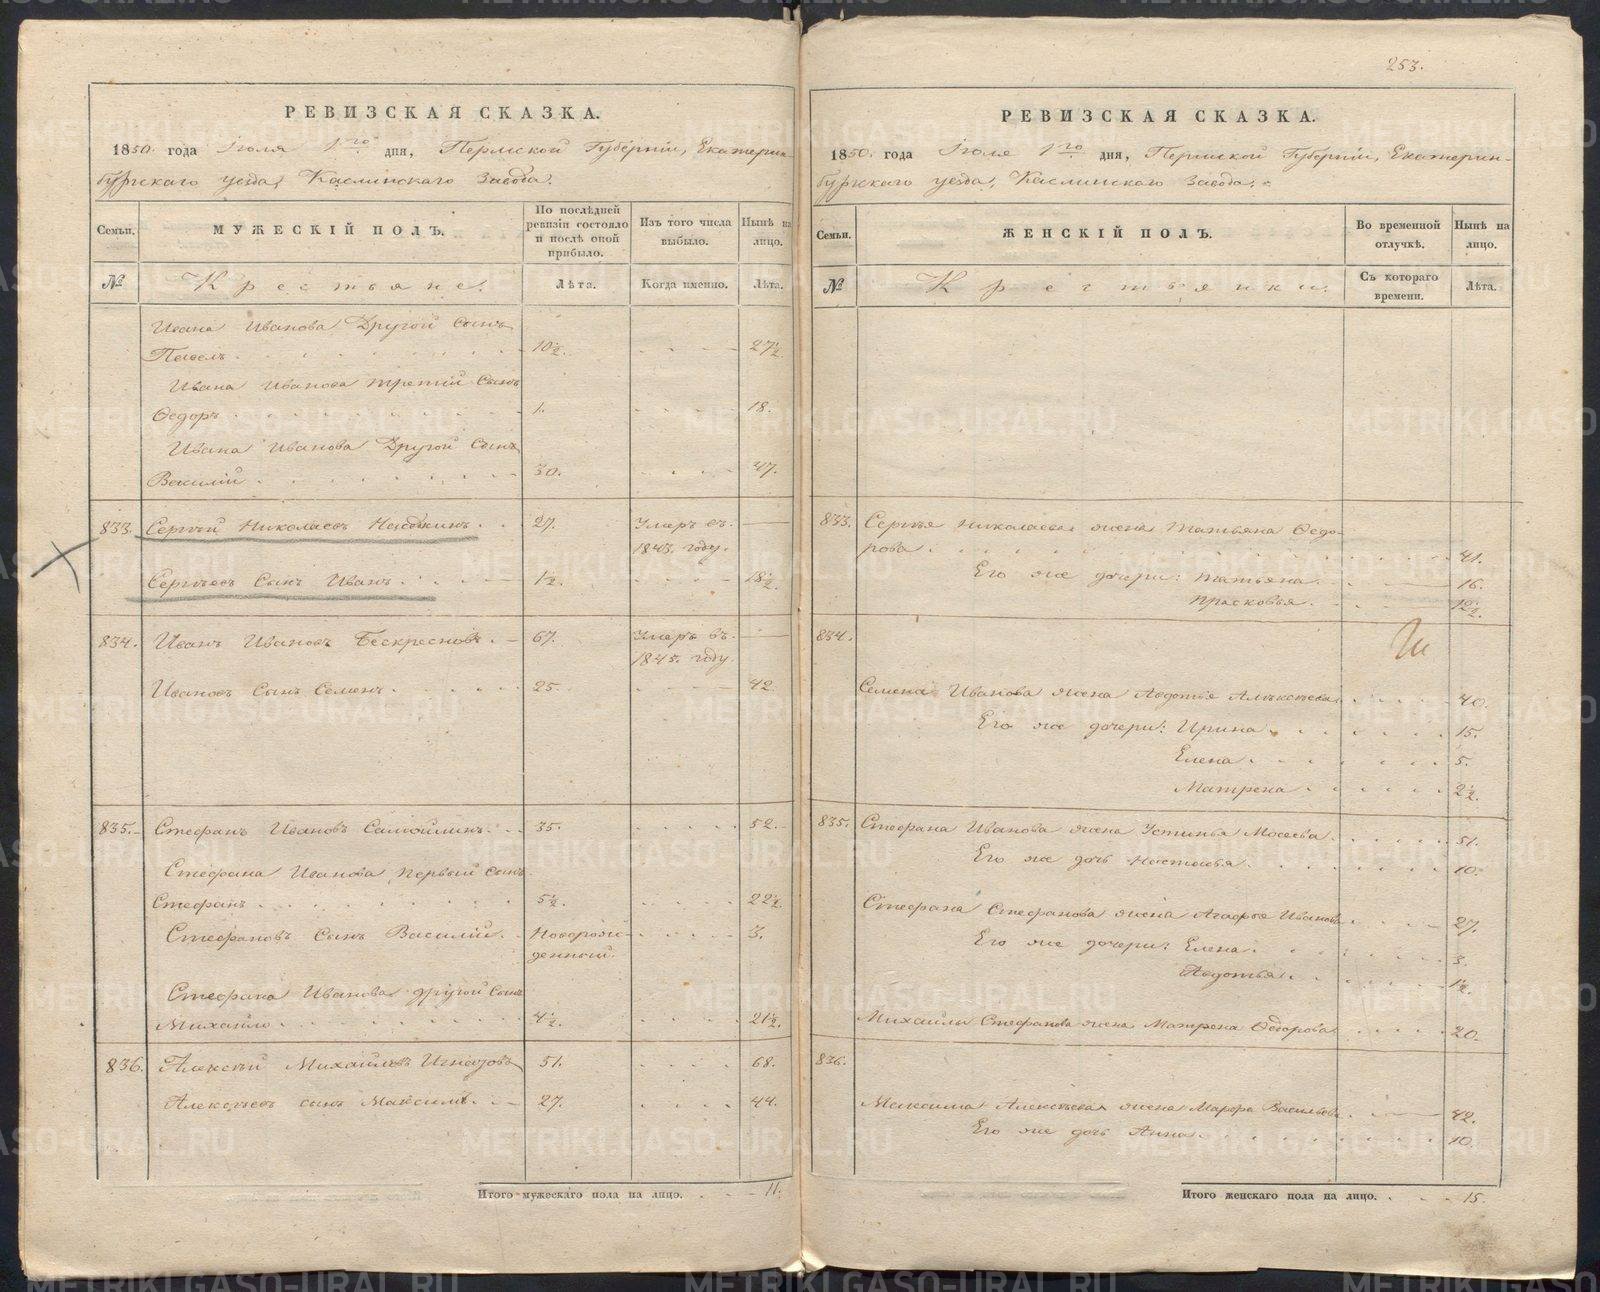 253.
РЕВИЗСКАЯ СКАЗКА.
1850. года Іюля 1го дня, Пермской Губерніи, Екатерин-
бургскаго уезда, Каслинскаго Завода.
Семьи.
МУЖЕСКІЙ ПОЛЪ.
По послѣдней ревизіи состояло и послѣ оной прибыло.
Изъ того числа выбыло.
Нынѣ на лицо.
№
Крестьяне.
Лѣта.
Когда именно.
Лѣта.
Ивана Иванова Другой Сынъ
Павелъ. 10½. 27½.
Ивана Иванова третій Сынъ
Ѳедоръ. 1. 18.
Ивана Иванова Другой Сынъ
Василій. 30. 47.
833. Сергѣй Николаевъ 27. Умеръ въ
1845. году.
Сергѣевъ Сынъ Иванъ. 1½. 18½.
834. Иванъ Ивановъ Бескресновъ. 67. Умеръ въ
1845. году.
Ивановъ Сынъ Семенъ. 25. 42.
835. Стефанъ Ивановъ Самойлинъ. 35. 52.
Стефана Иванова первый сынъ
Стефанъ. 5½. 22½.
Стефановъ Сынъ Василій. Новорож-
денный. 3.
Стефана Иванова другой Сынъ
Михайло. 4½. 21½.
836. Алексѣй Михайловъ Игнатовъ 51. 68.
Алексѣевъ сынъ Максимъ. 27. 44.
Итого мужескаго пола на лицо. 11.
РЕВИЗСКАЯ СКАЗКА.
1850. года Іюля 1го дня, Пермской Губерніи, Екатерин-
бургскаго уезда, Каслинскаго Завода.
Семьи.
ЖЕНСКІЙ ПОЛЪ.
Во временной отлучкѣ.
Нынѣ на лицо.
№
Крестьянки.
Съ котораго времени.
Лѣта.
833. Сергѣя Николаева жена Татьяна Ѳедо-
рова. 41.
Его же дочери: Татьяна. 16.
Прасковья. 12½.
834.
Семена Иванова жена Авдотья Алексѣева 40.
Его же дочери: Ирина. 15.
Елена. 5.
Матрена. 2½.
835. Стефана Иванова жена Устинья Мосеева. 51.
Его же дочь Настасья. 10.
Стефана Стефанова жена Агафья Иванова 27.
Его же дочери: Елена. 3.
Авдотья. 1½.
Михайлы Стефанова жена Матрена Ѳедорова 20.
836.
Максима Алексѣева жена Марфа Васильева 42.
Его же дочь Анна. 10.
Итого женскаго пола на лицо. 15.
METRIKI.GASO-URAL.RU